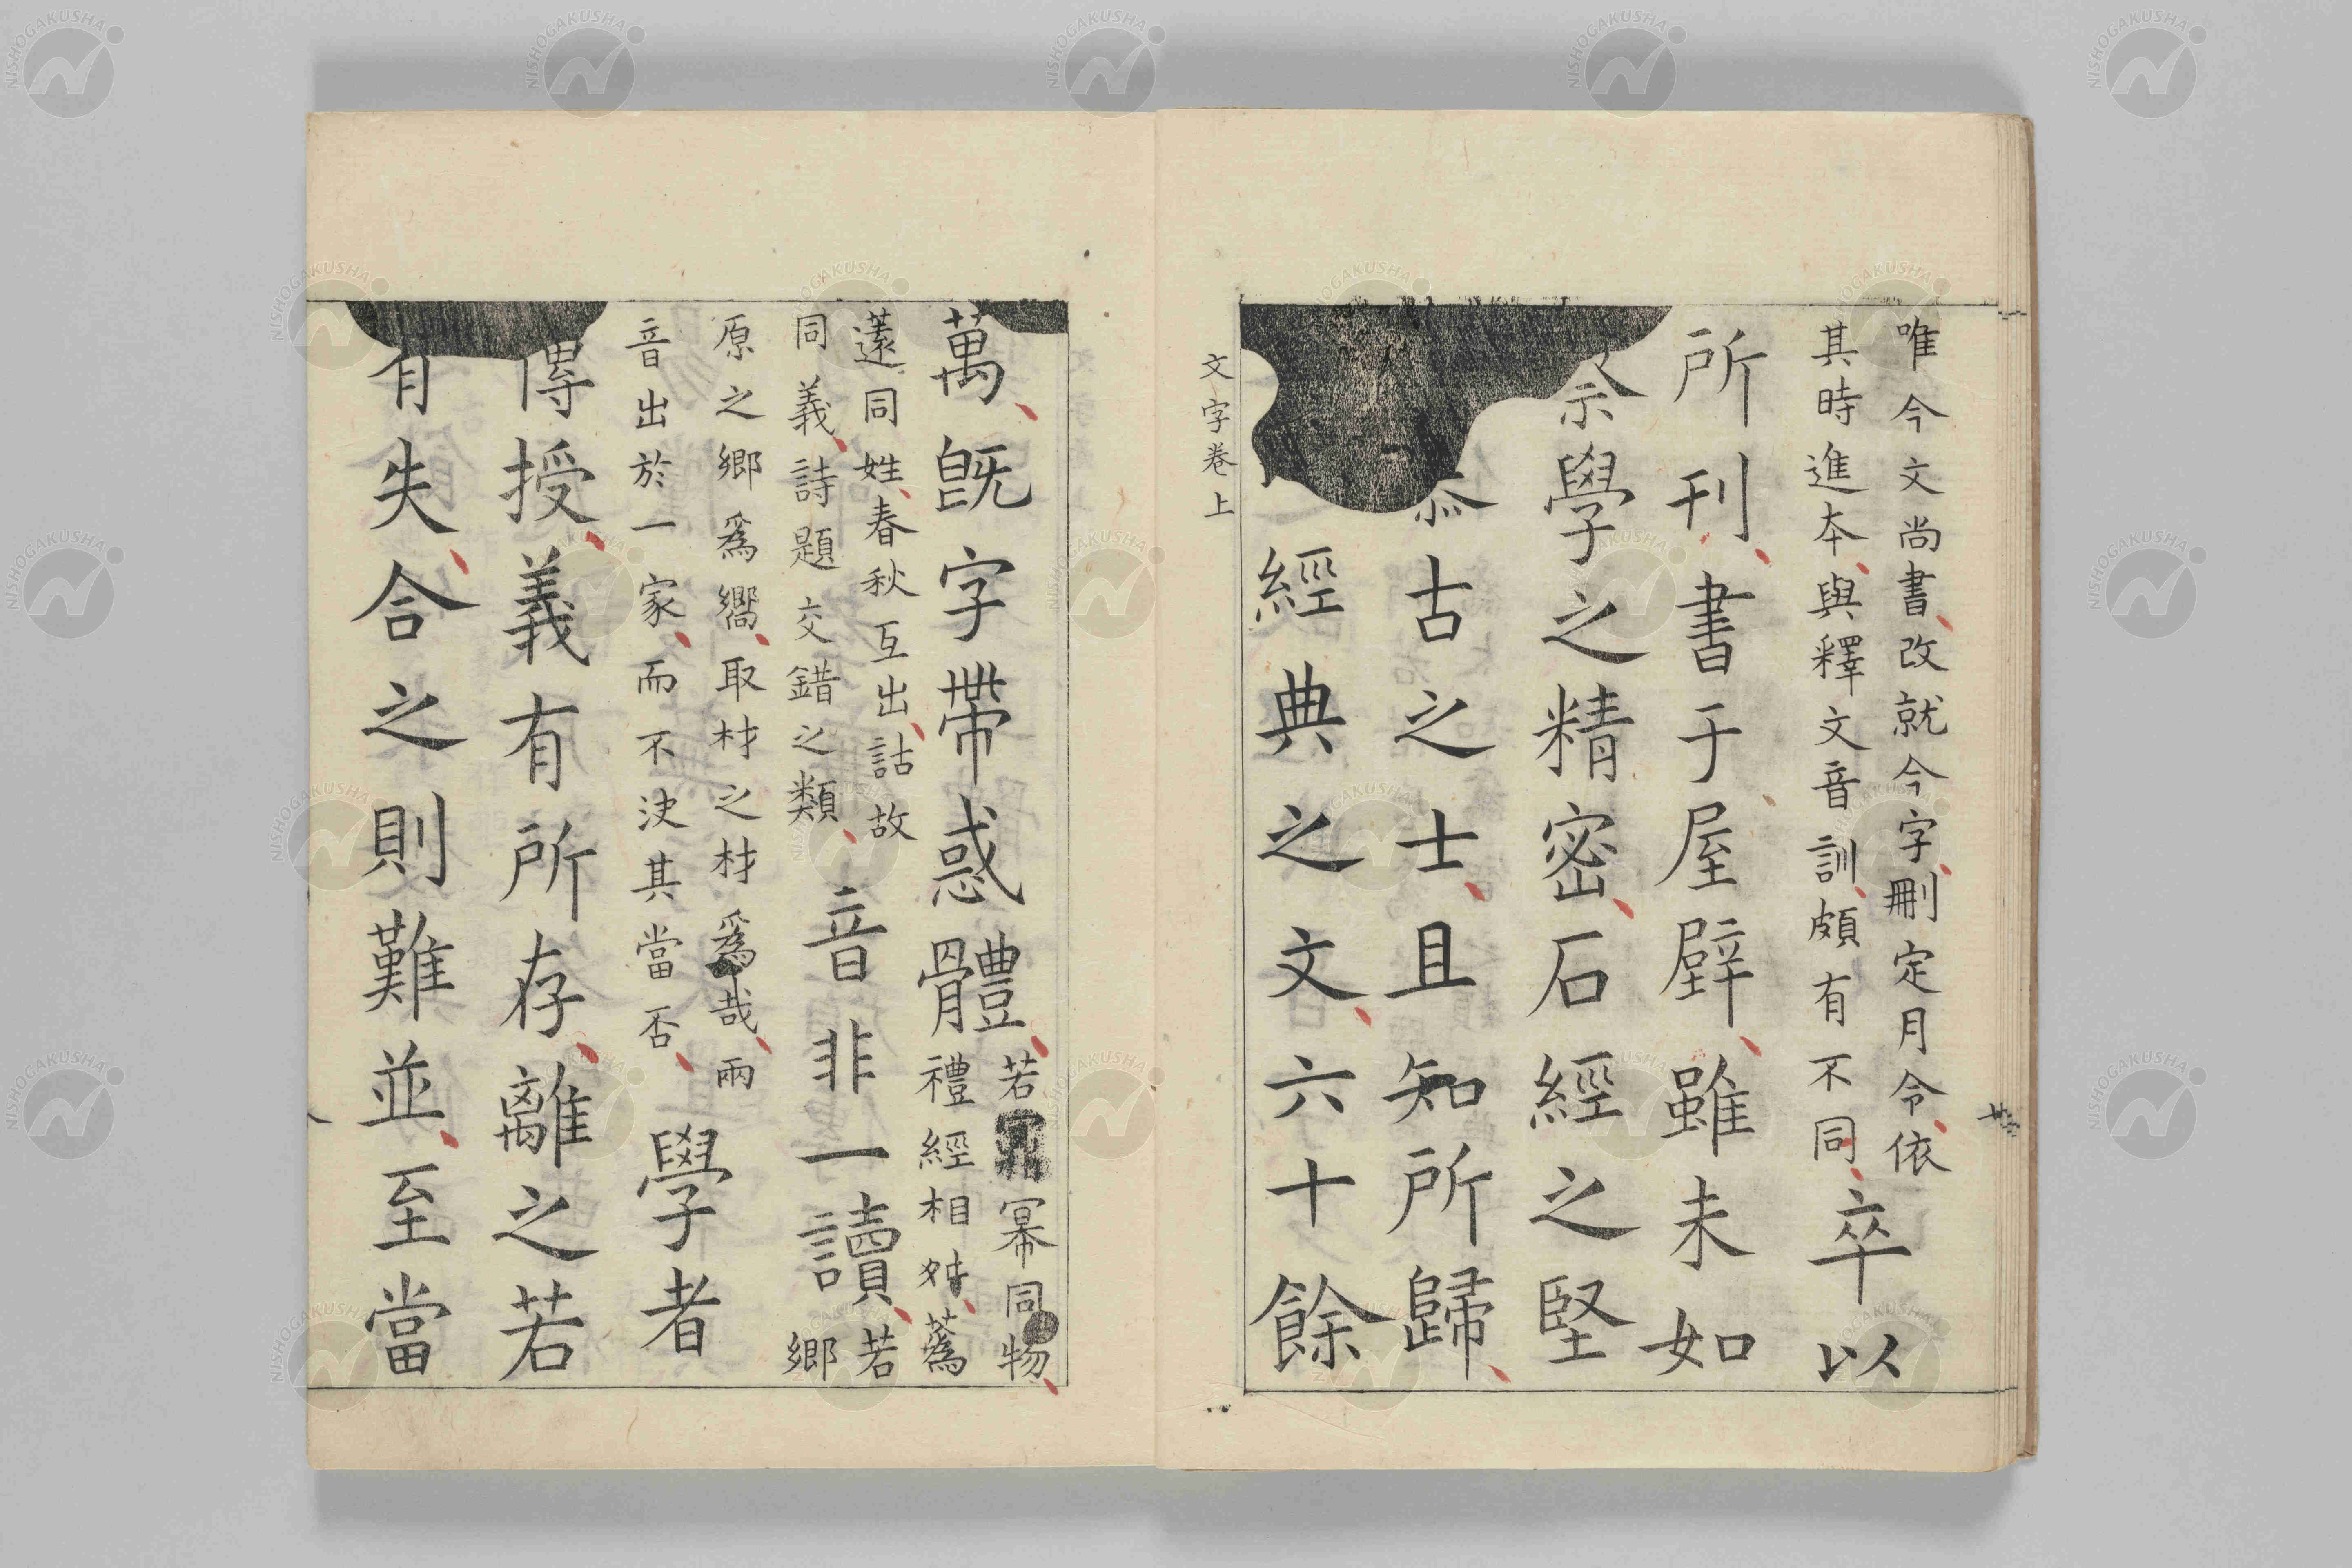 唯今文尚書改就今字刪定月令依
其時進本與釋文音訓頗有不同
卒以
所刊書于屋壁雖未如
學之精密石經之堅
古之士且知所歸
經典之文六十餘
文字卷上
萬既字帶惑體
若冪同物
禮經相舛蒍
薳同姓春秋互出詁故
同義詩題交錯之類
音非一讀
若
鄉
原之鄉爲嚮取材之材爲哉兩
音出於一家而不決其當否
學者
傳授義有所存離之若
有失合之則難並至當
NISHOGAKUSHA